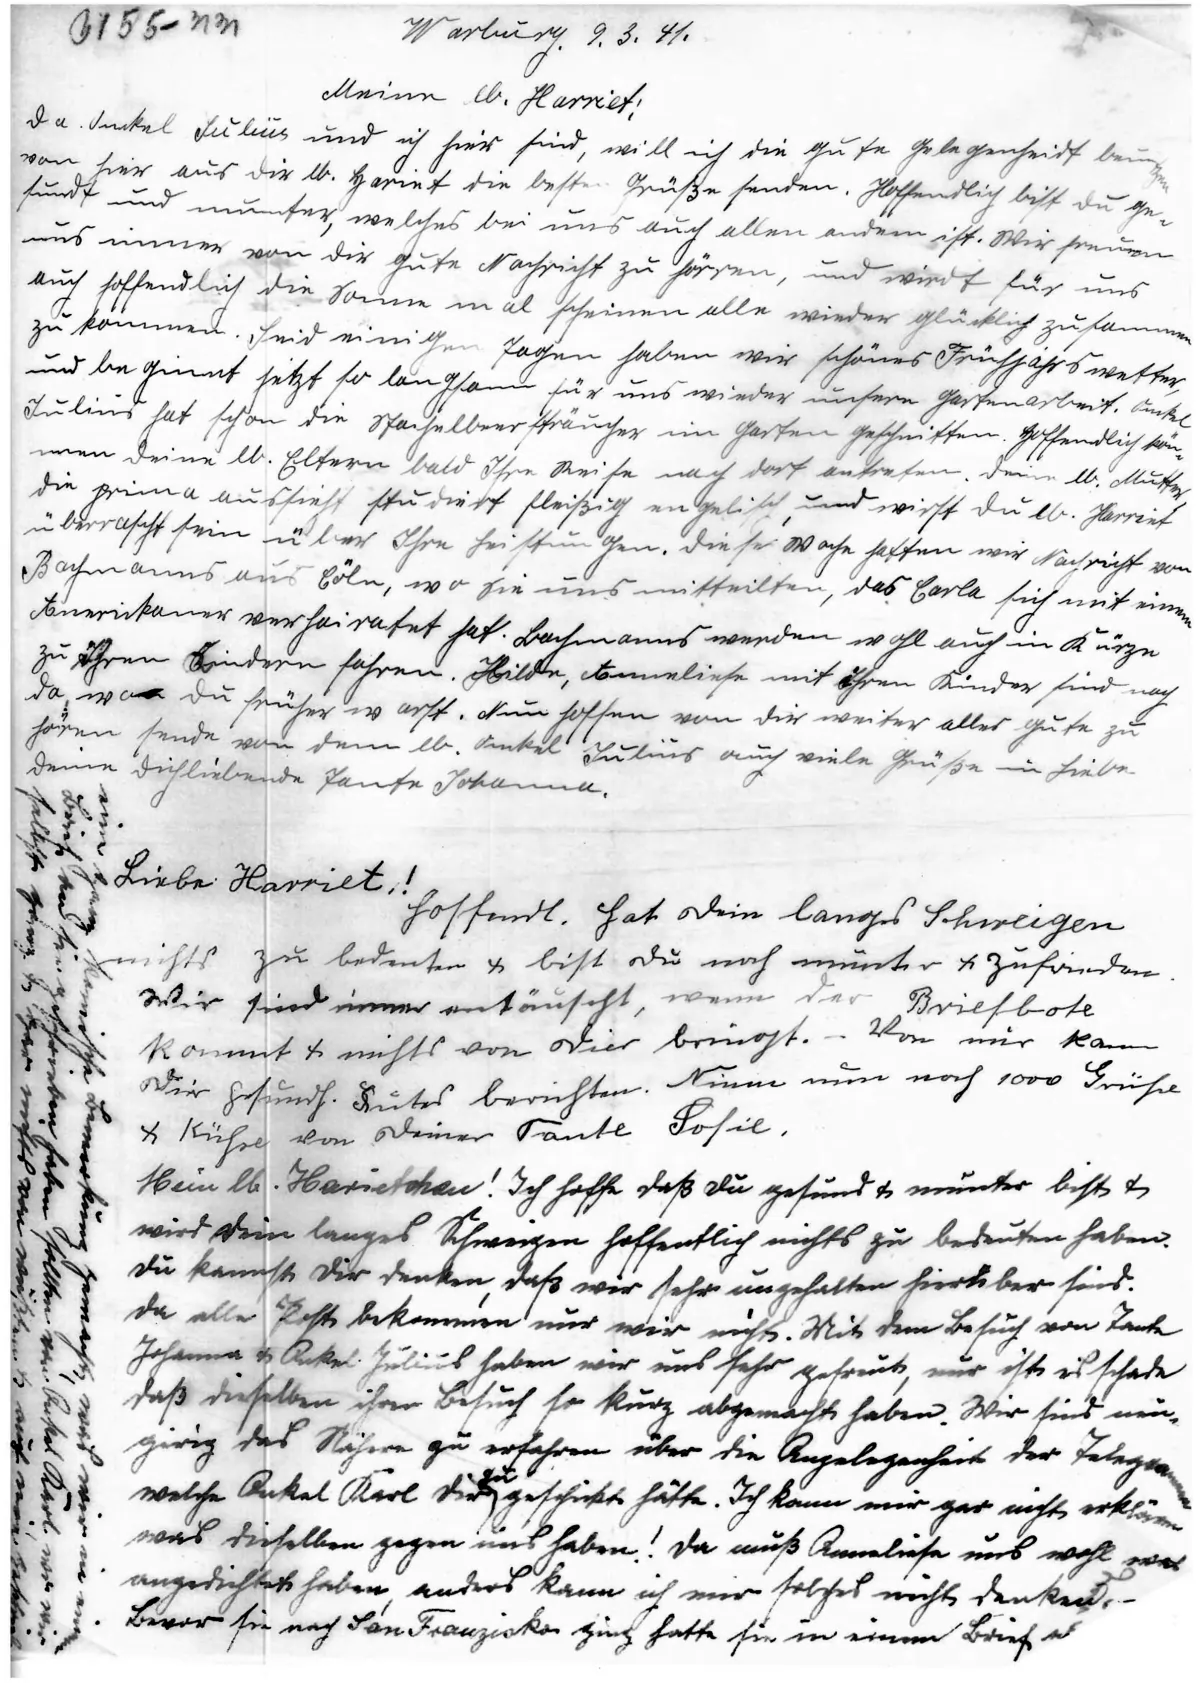 6155-nn
Warburg. 9. 3. 41.
Meine lb. Harriet!
Da Onkel Julius und ich hier sind, will ich die gute Gelegenheidt benutzen
von hier aus dir lb. Hariet die besten Grüße senden. Hoffendlich bist du ge-
sundt und munter, welches bei uns auch allen andern ist. Wir freuen
uns immer von dir gute Nachricht zu hörren, und wirdt für uns
auch hoffendlich die Sonne mal scheinen alle wieder glücklich zusammen
zu kommen. Seid einigen Tagen haben wir schönes Frühjahrswetter,
und beginnt jetzt so langsam für uns wieder unsere Gartenarbeit. Onkel
Julius hat schon die Stachelbeersträucher im Garten geschnitten. Hoffendlich kön-
nen deine lb. Eltern bald Ihre Reise nach dort antreten. Deine lb. Mutter,
die prima aussieht studiert fleißig engelisch, und wirst du lb. Harriet
überrascht sein über Ihre Leistungen. Diese Woche hatten wir Nachricht von
Bachmanns aus Cöln, wo Sie uns mitteilten, das Carla sich mit einem
Amerikaner verheiratet hat. Bachmanns werden wohl auch in Kürze
zu Ihren Kindern fahren. Hilde, Anneliese mit Ihren Kinder sind noch
da, wo du früher warst. Nun hoffen von dir weiter alles gute zu
hören sende von dem lb. Onkel Julius auch viele Grüße in Liebe
deine dichliebende Tante Johanna.
Liebe Harriet!
Hoffendl. hat Dein langes Schweigen
nichts zu bedeuten & bist Du noch munter & zufrieden.
Wir sind immer entäuscht, wenn der Briefbote
kommt & nichts von Dier bringt. – Von mir kann
Dir gesundh. Gutes berichten. Nimm nun noch 1000 Grüße
& Küße von Deiner Tante Sofie.
Mein lb. Harietchen! Ich hoffe daß Du gesund & munter bist &
wird Dein langes Schweigen hoffentlich nichts zu bedeuten haben.
Du kannst Dir denken, daß wir sehr ungehalten hierüber sind.
da alle Post bekommen nur wir nicht. Mit dem Besuch von Tante
Johanna & Onkel Julius haben wir uns sehr gefreut, nur ist es schade
daß dieselben ihren Besuch so kurz abgemacht haben. Wir sind neu-
gierig das Nähere zu erfahren über die Angelegenheit der Telegramme
welche Onkel Karl Dir zu geschickt hätte. Ich kann mir gar nicht erklären
was dieselben gegen uns haben! Da muß Anneliese uns wohl was
angedichtet haben, anders kann ich mir solches nicht denken. –
Bevor sie nach San Franzisko ging hatte sie in einem Brief
eine ganz komische Bemerkung gemacht, was wir in einem
Brief geschrieben haben sollten von Onkel Karl, wo wir
selbst ganz & gar nichts von wüßten &